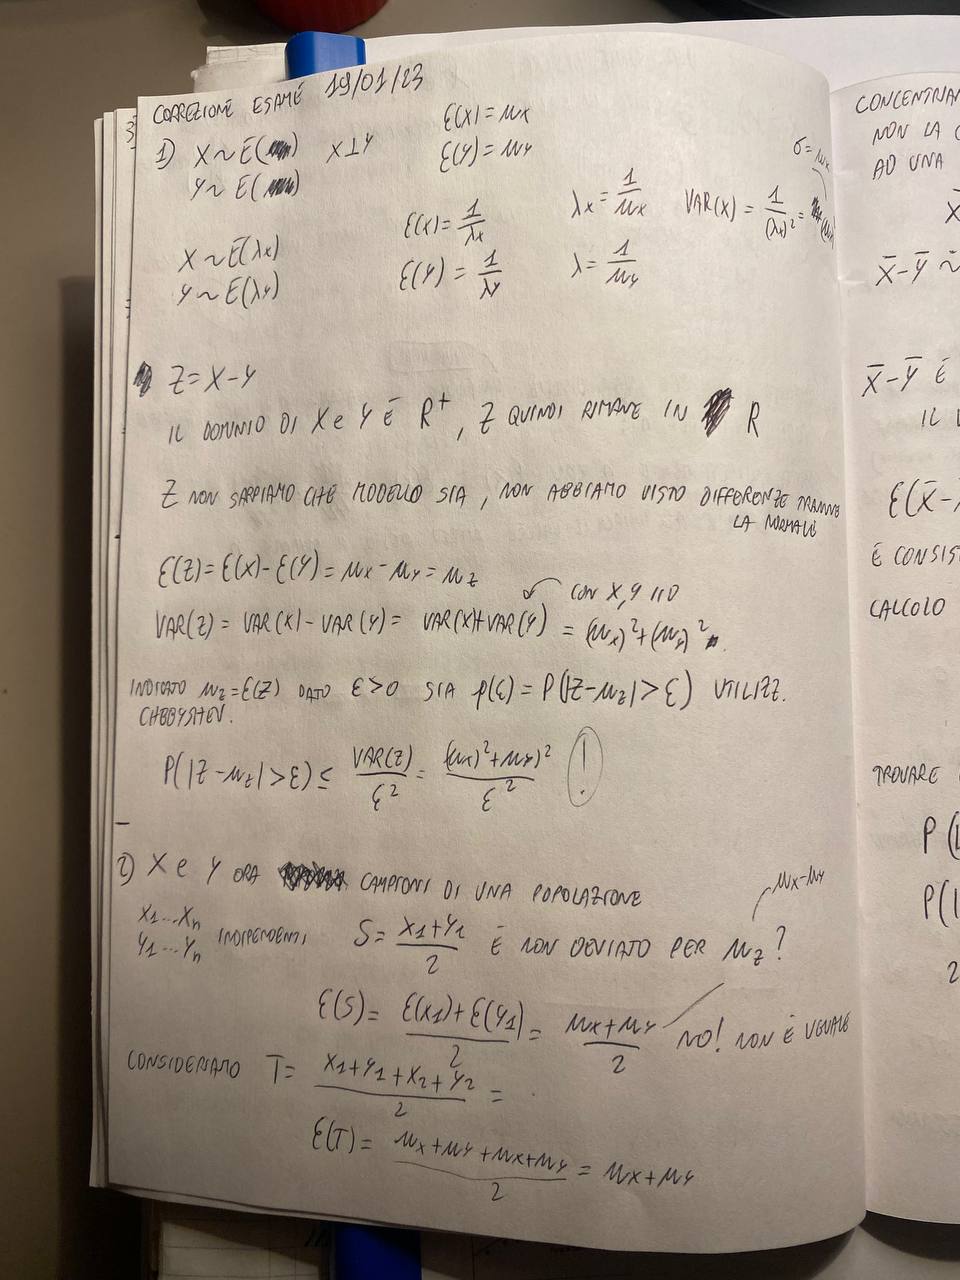 CORREZIONE ESAME 19/01/23
1) X ~ E( ) X⊥Y E(X) = μx
Y ~ E( ) E(Y) = μy
X ~ E(λx) E(X) = 1/λx λx = 1/μx VAR(X) = 1/(λx)² = (μx) σ = μx
Y ~ E(λy) E(Y) = 1/λy λ = 1/μy
Z = X - Y
IL DOMINIO DI X e Y È R⁺, Z QUINDI RIMANE IN R
Z NON SAPPIAMO CHE MODELLO SIA, NON ABBIAMO VISTO DIFFERENZE TRANNE
LA NORMALE
E(Z) = E(X) - E(Y) = μx - μy = μz
CON X, Y IID
VAR(Z) = VAR(X) - VAR(Y) = VAR(X)+VAR(Y) = (μx)² + (μy)²
INDICATO μz = E(Z) DATO ε>0 SIA p(ε) = P(|Z-μz|>ε) UTILIZZ.
CHEBYSHEV.
P(|Z-μz|>ε) ≤ VAR(Z)/ε² = (μx)²+μy)²/ε² !
2) X e Y ORA CAMPIONI DI UNA POPOLAZIONE
μx-μy
X1...Xn
Y1...Yn INDIPENDENTI S = X1+Y1/2 È NON DEVIATO PER μz?
E(S) = E(X1)+E(Y1)/2 = μx+μy/2 NO! NON È UGUALE
CONSIDERIAMO T = X1+Y1+X2+Y2/2 =
E(T) = μx+μy+μx+μy/2 = μx+μy
CONCENTRIAM
NON LA
AD UNA
X̄
X̄-Ȳ ~
X̄-Ȳ È
IL
E(X̄-
È CONSIS
CALCOLO
TROVARE
P(
P(|
2